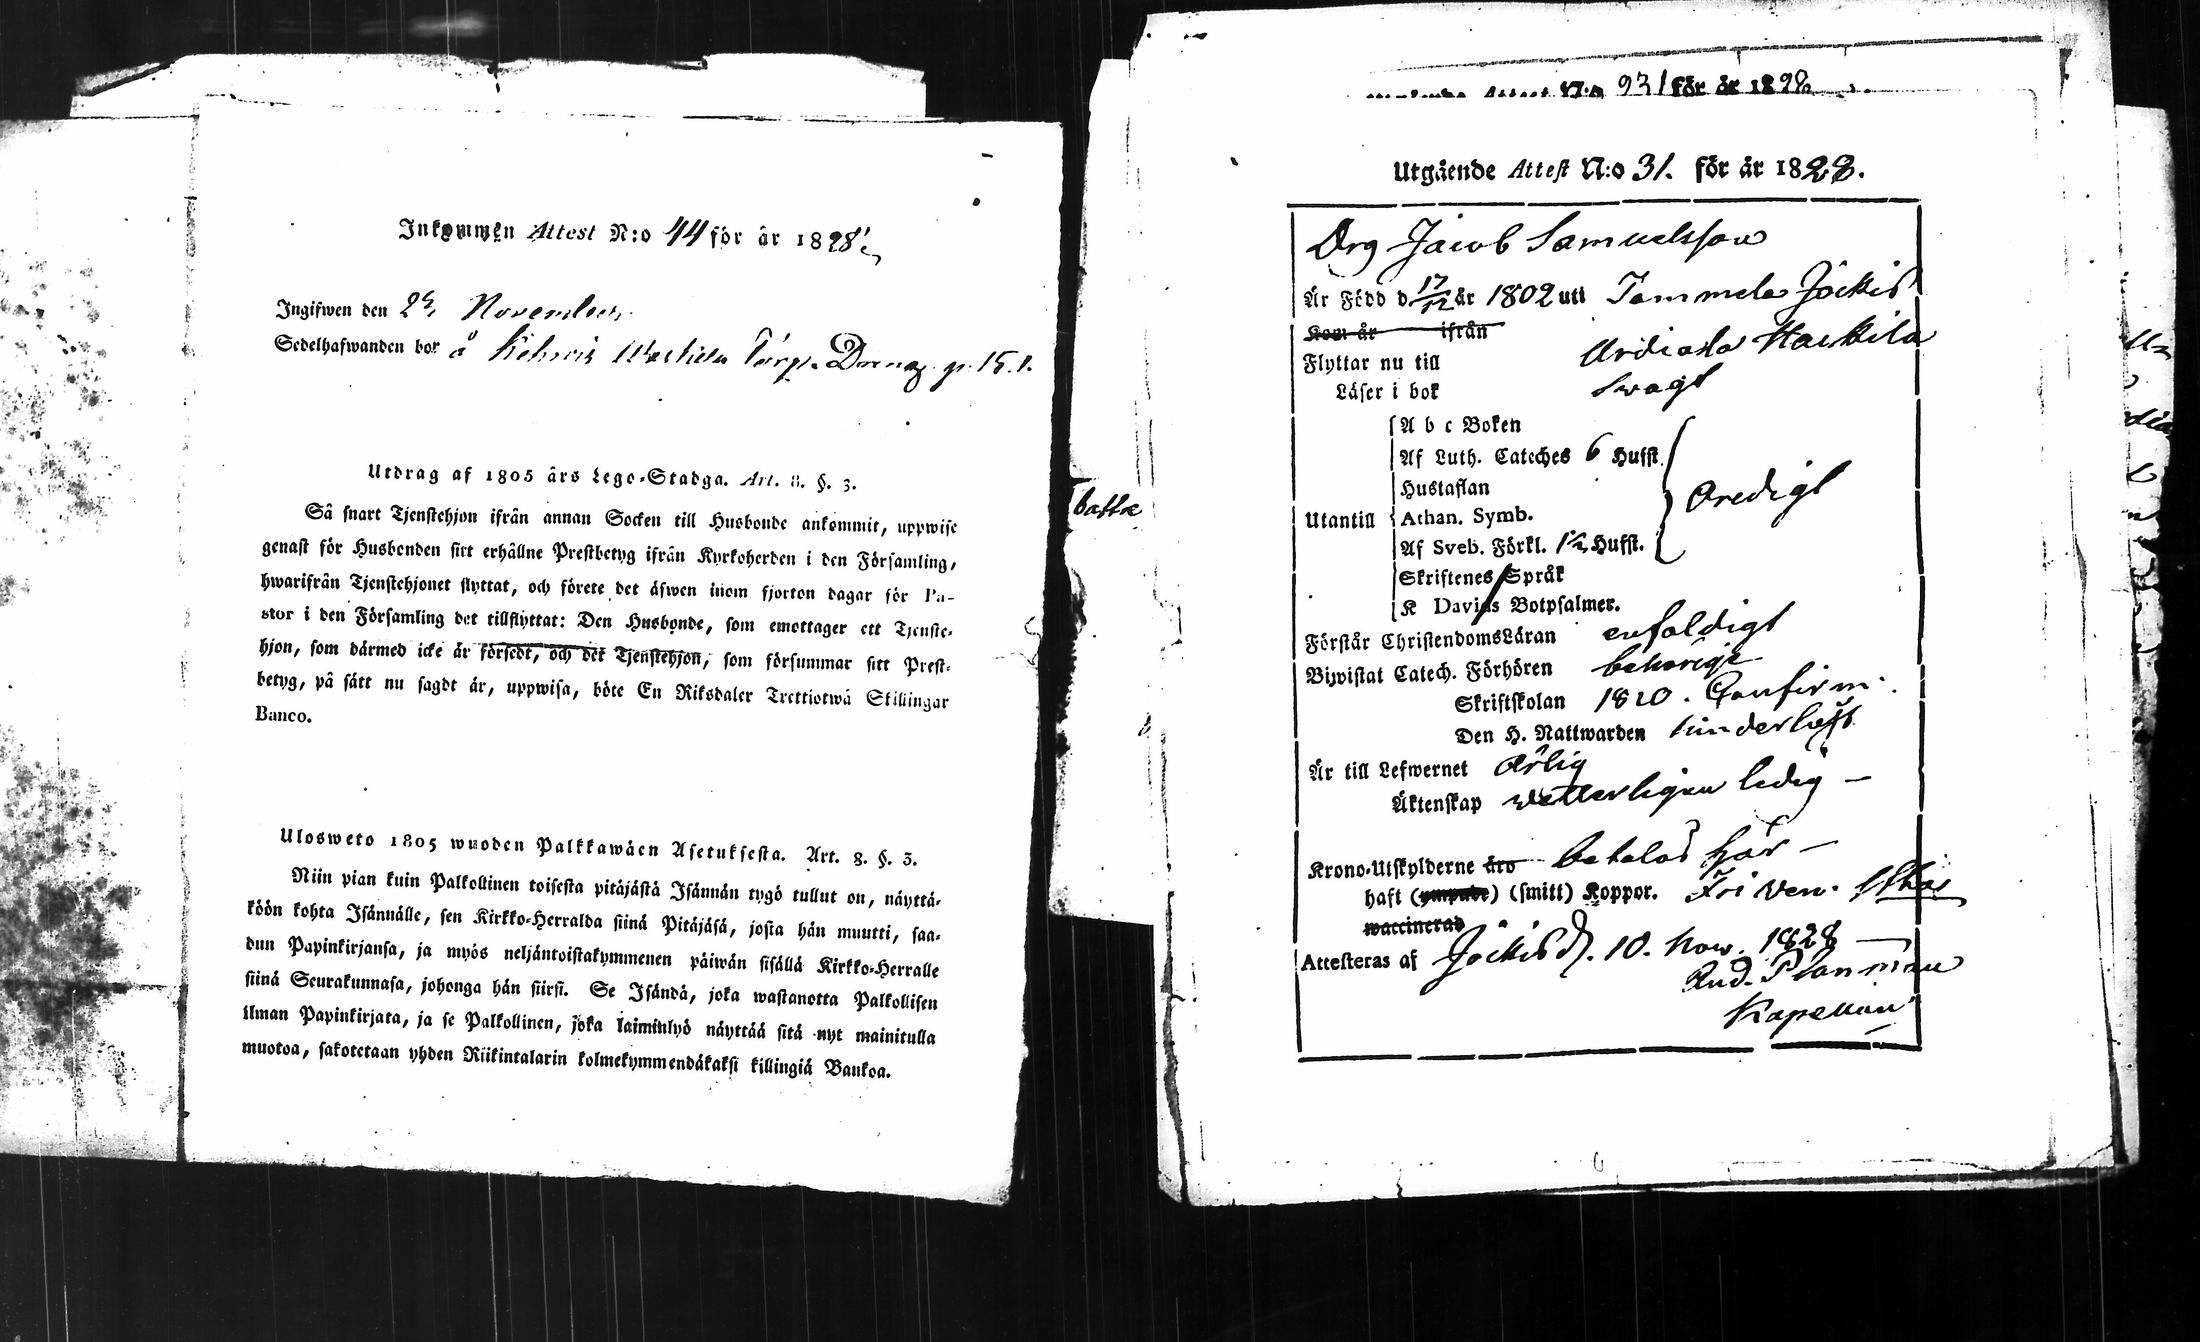 Inkommen Attest N:o 44 för år 1828
Ingifwen den November
Sedelhafwanden bor å Torp. Dreng p. 15.1.
Utdrag af 1805 års Lego-Stadga. Art. 8. §. 3.
Så snart Tjenstehjon ifrån annan Socken till Husbonde ankommit, uppwise
genast för Husbonden sitt erhållne Prestbetyg ifrån Kyrkoherden i den Församling,
hwarifrån Tjenstehjonet flyttat, och förete det äfwen inom fjorton dagar för Pa-
stor i den Församling det tillflyttat: Den Husbonde, som emottager ett Tjenste-
hjon, som därmed icke är försedt, och det Tjenstehjon, som försummar sitt Prest-
betyg, på sätt nu sagdt är, uppwisa, böte En Riksdaler Trettiotwå Skillingar
Banco.
Ulosweto 1805 wuoden Palkkawäen Asetuksesta. Art. 8. §. 3.
Niin pian kuin Palkollinen toisesta pitäjästä Isännän tygö tullut on, näyttä-
köön kohta Isännälle, sen Kirkko-Herralda siinä Pitäjäsä, josta hän muutti, saa-
dun Papinkirjansa, ja myös neljäntoistakymmenen päiwän sisällä Kirkko-Herralle
siinä Seurakunnasa, johonga hän siirsi. Se Isändä, joka wastanotta Palkollisen
ilman Papinkirjata, ja se Palkollinen, joka laiminlyö näyttää sitä nyt mainitulla
muotoa, sakotetaan yhden Riikintalarin kolmekymmendäkaksi killingiä Bankoa.
battre
Attest N:o 931 för år 1828
Utgående Attest N:o 31. för år 1828.
Drg Jacob Samuelsson
Är Född d 17/12 år 1802 uti Tammela Jockis
Kom år ifrån
Flyttar nu till Urdiala Hackila
Läser i bok swagt
Utantill
A b c Boken
Af Luth. Cateches 6 Hufst.
Hustaflan
Athan. Symb.
Af Sveb. Förkl. 1½ Hufst.
Oredigt
Skriftenes Språk
K Davids Botpsalmer.
Förstår ChristendomsLäran enfaldigt
Biwistat Catech. Förhören behörige
Skriftskolan 1820. Confirm.
Den H. Nattwarden
Är till Lefwernet Ärlig
Äktenskap wetterligen ledig —
Krono-Utskylderne äro betalas här —
haft (ympade) (smitt) Koppor. Fri Ven.
waccinerad
Attesteras af Jockis d. 10. Nov. 1828
And. Planman
Kapellan